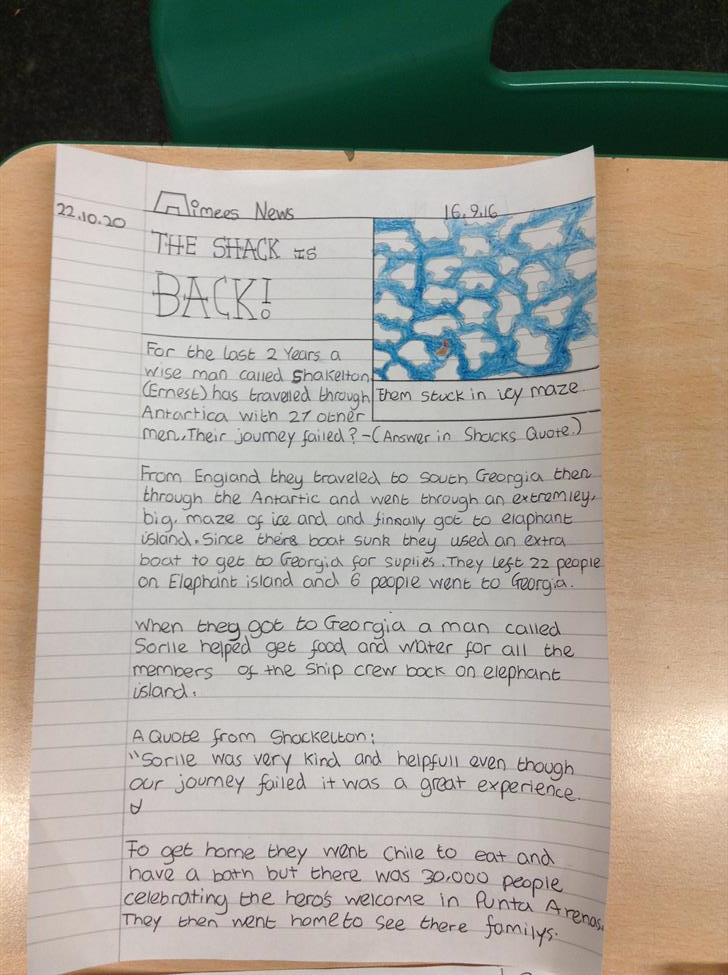 22.10.20
Aimees News
16.9.16
THE SHACK IS
BACK!
For the last 2 Years a
wise man called Shakelton
(Ernest) has traveled through
Antartica with 27 other
men. Their journey failed? -(Answer in Shacks Quote.)
Them stuck in icy maze
From England they traveled to South Georgia then
through the Antartic and went through an extremley,
big, maze of ice and and finnally got to elaphant
island. Since theire boat sunk they used an extra
boat to get to Georgia for suplies. They left 22 people
on Elaphant island and 6 people went to Georgia.
When they got to Georgia a man called
Sorlle helped get food and water for all the
members of the ship crew back on elephant
island.
A Quote from Shackelton:
"Sorlle was very kind and helpfull even though
our journey failed it was a great experience.
"
To get home they went Chile to eat and
have a bath but there was 30,000 people
celebrating the hero's welcome in Punta Arenas.
They then went home to see there familys.